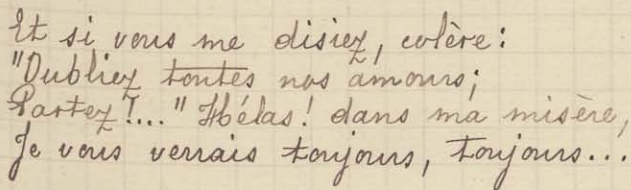 Et si vous me disiez, colère:
"Oubliez toutes nos amours;
Partez!..." Hélas! dans ma misère,
Je vous verrais toujours, toujours...